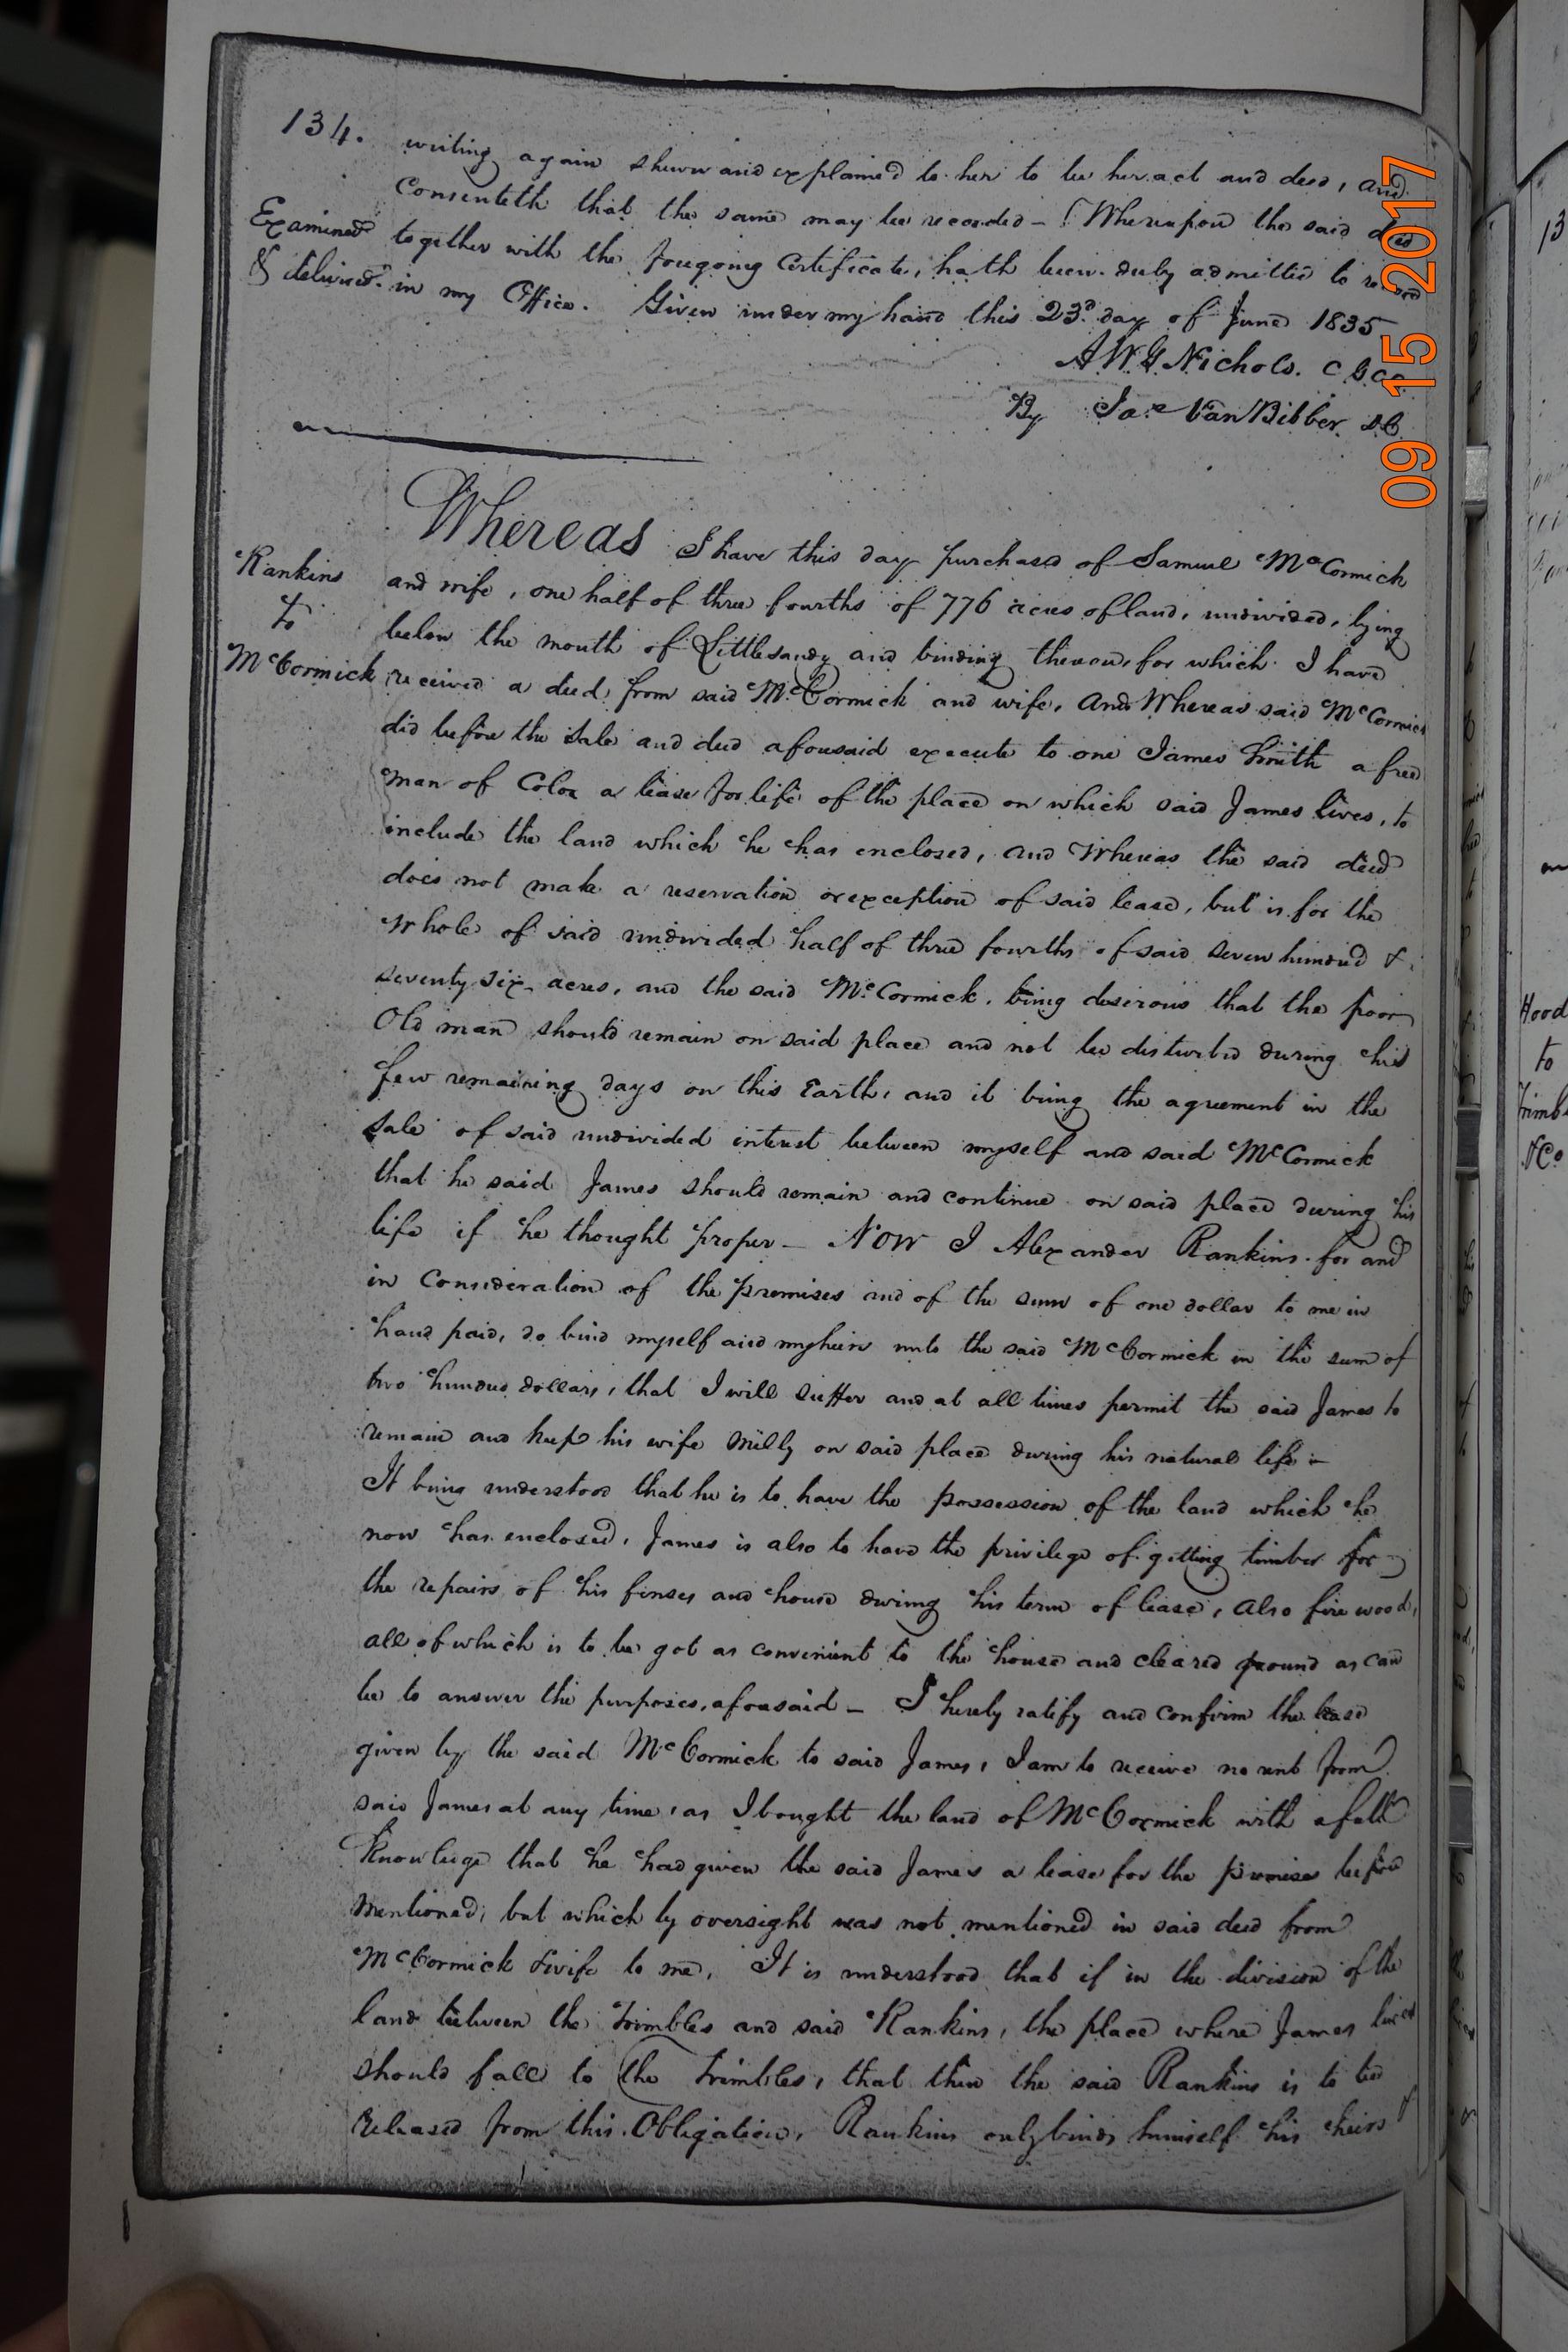 134.
writing again shewn and explained to her to be her act and deed, and
Consenteth that the same may be recorded – Whereupon the said deed
Examined
together with the foregoing Certificate, hath been duly admitted to record
& delivered.
in my Office. Given under my hand this 23d. day of June 1835
A W G Nichols. C G CC
By Jas. Van Bibber DC
Whereas I have this day purchased of Samuel McCormick
Rankins
to
McCormick
and wife, one half of three fourths of 776 acres of land, undivided, lying
below the mouth of Little sandy and binding thereon, for which I have
received a deed from said McCormick and wife, And Whereas said McCormick
did before the sale and deed aforesaid execute to one James Smith a free
man of Color a lease for life of the place on which said James lives, to
include the land which he has enclosed, and Whereas the said deed
does not make a reservation or exception of said lease, but is for the
Whole of said undivided half of three fourths of said seven hundred &
seventy six acres, and the said McCormick, being desirous that the poor
Old man should remain on said place and not be disturbed during his
few remaining days on this Earth, and it being the agreement in the
Sale of said undivided interest between myself and said McCormick
that he said James should remain and continue on said place during his
life if he thought proper – Now I Alexander Rankins for and
in Consideration of the premises and of the sum of one dollar to me in
hand paid, do bind myself and my heirs unto the said McCormick in the sum of
two hundred dollars, that I will suffer and at all times permit the said James to
remain and keep his wife Milly on said place during his natural life –
It being understood that he is to have the possession of the land which he
now has enclosed, James is also to have the privilege of getting timber for
the repairs of his finses and house during his term of lease, Also fire wood,
all of which is to be got as convenient to the house and cleared ground as can
be to answer the purposes, aforesaid – I hereby ratify and confirm the lease
given by the said McCormick to said James, I am to receive no rent from
said James at any time, as I bought the land of McCormick with a full
Knowledge that he had given the said James a lease for the premises before
mentioned, but which by oversight was not mentioned in said deed from
McCormick & wife to me, It is understood that if in the division of the
land between the Trimbles and said Rankins, the place where James lives
should fall to the Trimbles, that then the said Rankins is to be
released from this Obligation, Rankins only binds himself his heirs &
09 15 2017
13
Hood
to
Trimble
&Co